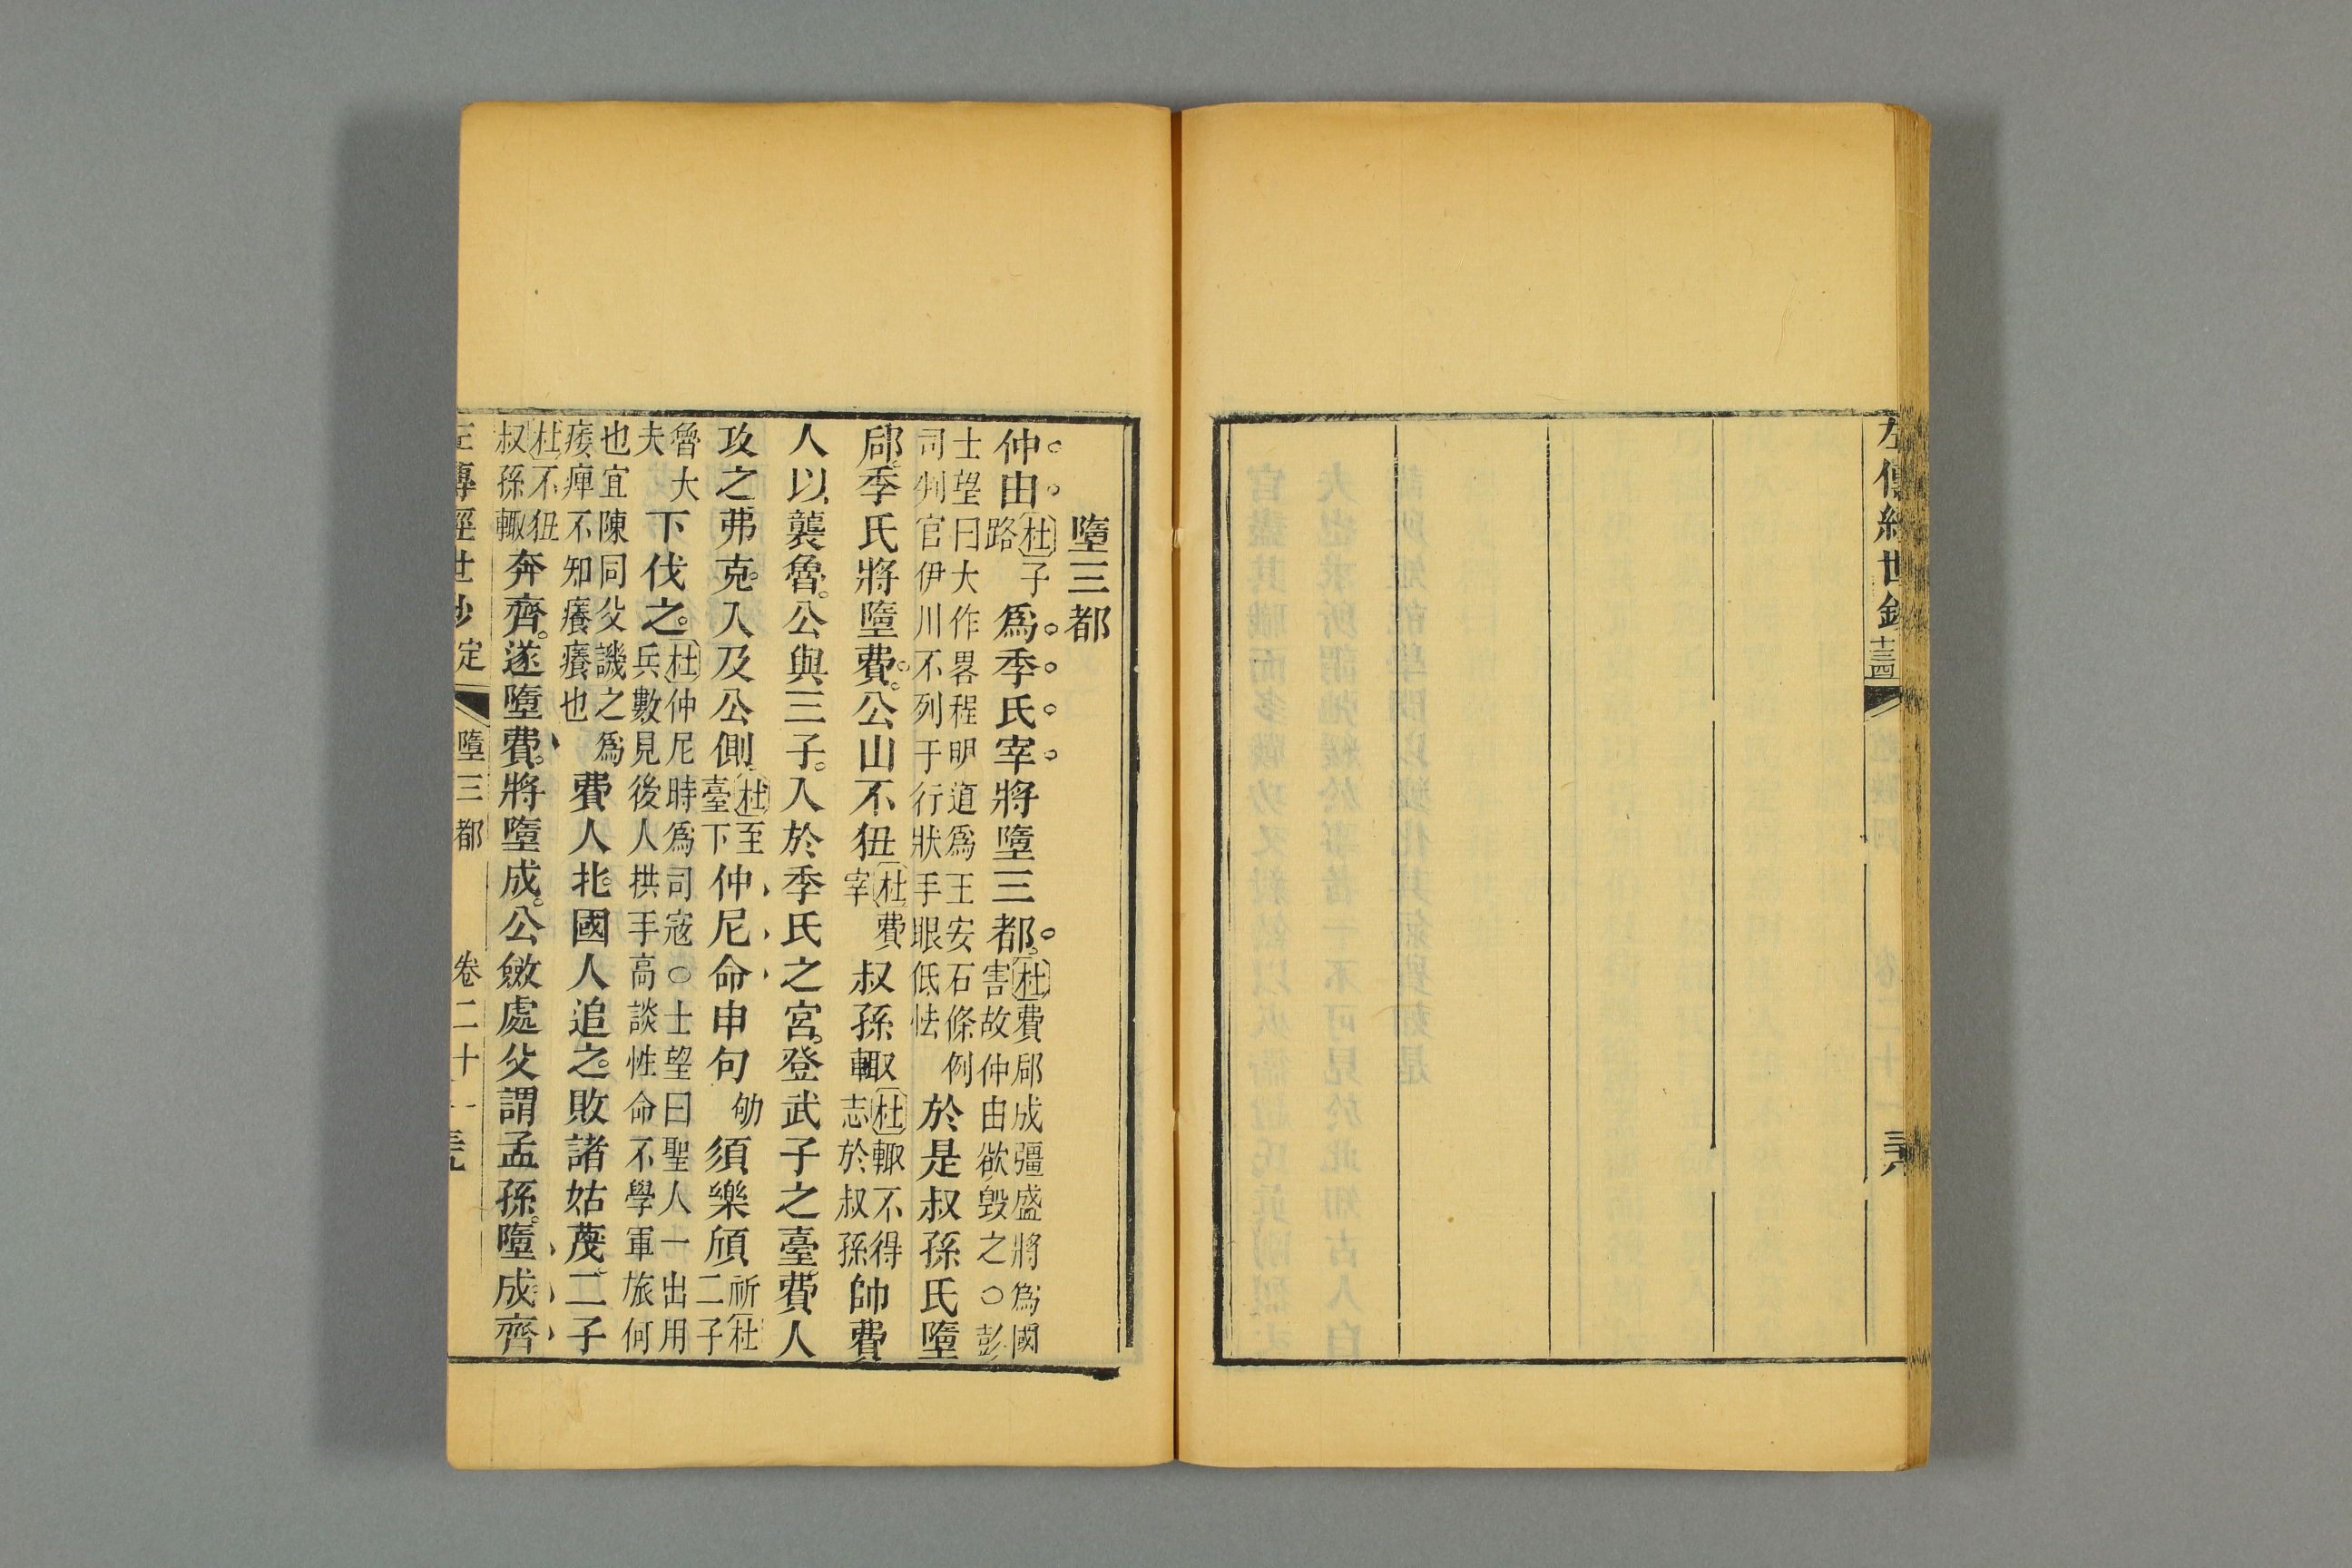 左傳經世鈔
墮三都
仲由杜子路爲季氏宰將墮三都杜費郈成彊盛將爲國害故仲由欲毀之○彭
士望曰大作畧程明道爲王安石條例司判官伊川不列于行狀手眼低怯於是叔孫氏墮
郈季氏將墮費公山不狃杜費宰叔孫輒杜輒不得志於叔孫帥費
人以襲魯公與三子入於季氏之宮登武子之臺費人
攻之弗克入及公側杜至臺下仲尼命申句劬須樂頎祈杜二子
魯大夫下伐之杜仲尼時爲司寇○士望曰聖人一出用兵數見後人拱手高談性命不學軍旅何
也宜陳同父譏之爲痿痺不知癢癢也費人北國人追之敗諸姑蔑二子
杜不狃叔孫輒奔齊遂墮費將墮成公斂處父謂孟孫墮成齊
左傳經世鈔定 墮三都 卷二十一